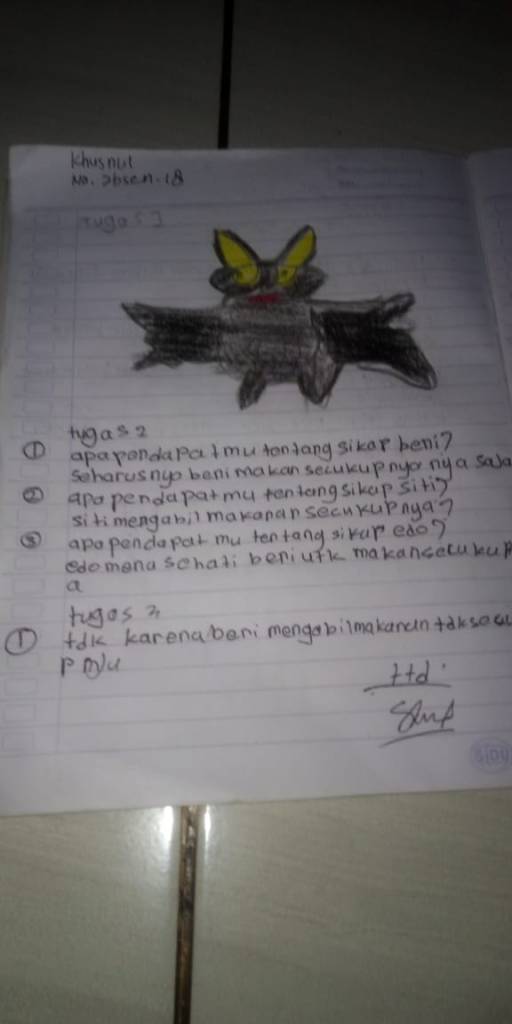 Khusnul
No. absen-18
tugas 1
tugas 2
① apa pendapatmu tentang sikap beni?
seharusnyo beni makan secukupnya nya saja
② apa pendapatmu tentang sikap siti?
siti mengabil makanan secukupnya?
③ apa pendapat mu tentang sikap edo?
edo menasehati beni utk makan secukup
a
tugas 3
① tdk karena beni mengabil makanan tdk secu
p nya
ttd
SIDU